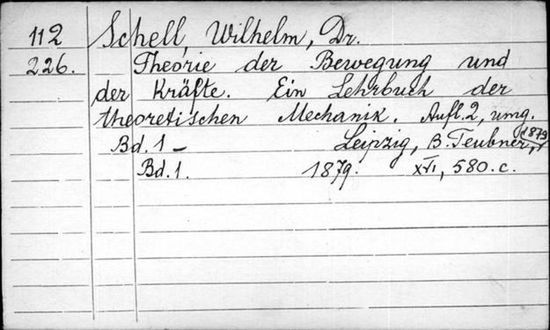 112 Schell, Wilhelm, Dr.
226. Theorie der Bewegung und
der Kräfte. Ein Lehrbuch der
theoretischen Mechanik. Aufl. 2, umg.
Bd. 1 – Leipzig, B. Teubner, 1879
Bd. 1. 1879. XVI, 580. c.